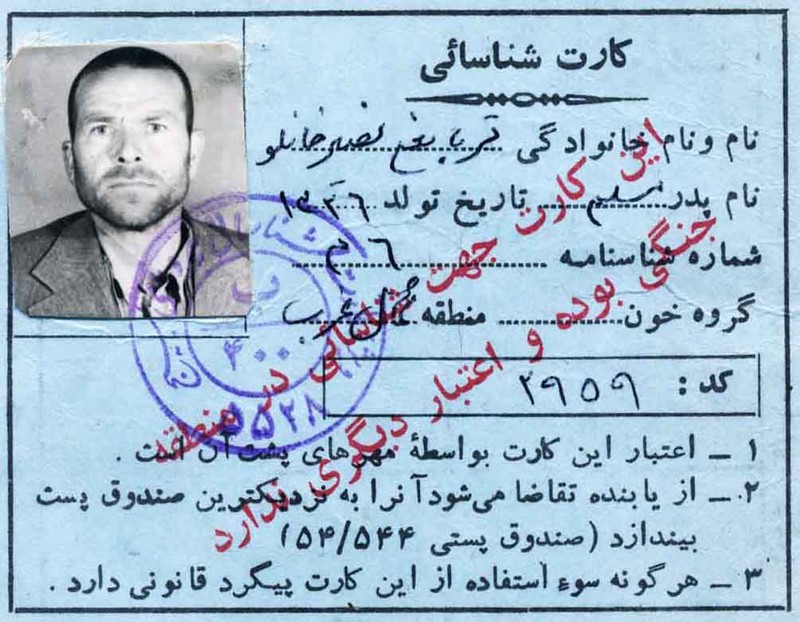 کارت شناسائی
نام و نام خانوادگی نصیرخانلو
نام پدر مسلم تاریخ تولد ۱۳۳۶
شماره شناسنامه ۶
گروه خون منطقه غرب
کد: ۲۹۵۹
۱ ـ اعتبار این کارت بواسطهٔ مهرهای پشت آن است .
۲ ـ از یابنده تقاضا می‌شود آنرا به نزدیکترین صندوق پست
بیندازد (صندوق پستی ۵۴/۵۴۴)
۳ ـ هرگونه سوء استفاده از این کارت پیگرد قانونی دارد .
این کارت جهت شناسائی در منطقه
جنگی بوده و اعتبار دیگری ندارد
۴۰۰
۵۵۲۸